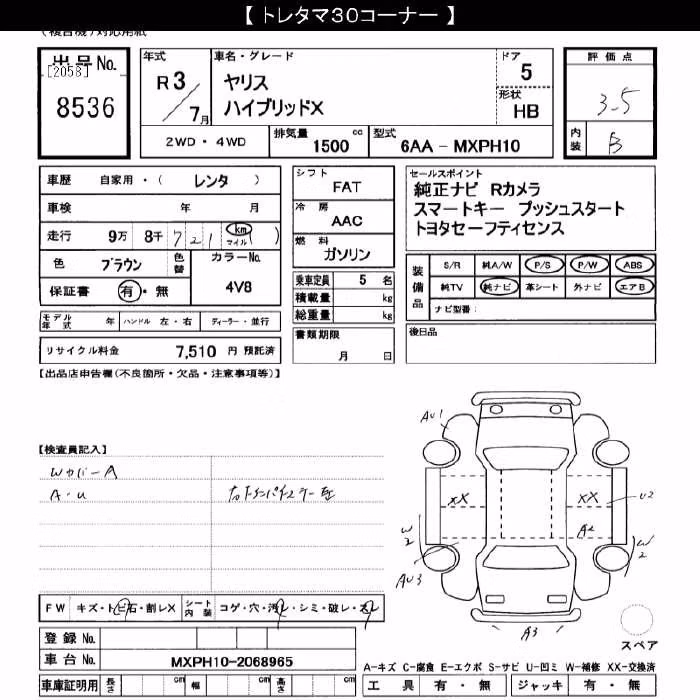 【 トレタマ30コーナー 】
(複合機)対応用紙
出品No.
[2058]
8536
年式
R 3 / 7月
車名・グレード
ヤリス
ハイブリッドX
ドア
5
形状
HB
評価点
3.5
内装
B
2WD・4WD
排気量 1500 cc
型式 6AA - MXPH10
車歴 自家用・( レンタ )
車検 年 月
走行 9万 8千 721 (km マイル)
色 ブラウン 色替
カラーNo.
4V8
保証書 有・無
シフト
FAT
冷房
AAC
燃料
ガソリン
乗車定員 5 名
積載量 kg
総重量 kg
書類期限
月 日
セールスポイント
純正ナビ Rカメラ
スマートキー プッシュスタート
トヨタセーフティセンス
装備品
S/R 純A/W P/S P/W ABS
純TV 純ナビ 革シート 外ナビ エアB
ナビ型番:
後日品
モデル年式 年 ハンドル 左・右 ディーラー・並行
リサイクル料金 7,510 円 預託済
【出品店申告欄(不良箇所・欠品・注意事項等)】
【検査員記入】
WカバーA
A・U
AU1
XX XX U2
W2 A2 W2
AU3
A3
FW キズ・トビ石・割レX シート内装 コゲ・穴・汚レ・シミ・破レ・スレ
登録No.
車台No. MXPH10-2068965
車庫証明用 長さ cm 幅 cm 高さ cm
スペア
A-キズ C-腐食 E-エクボ S-サビ U-凹ミ W-補修 XX-交換済
工具 有・無 ジャッキ 有・無